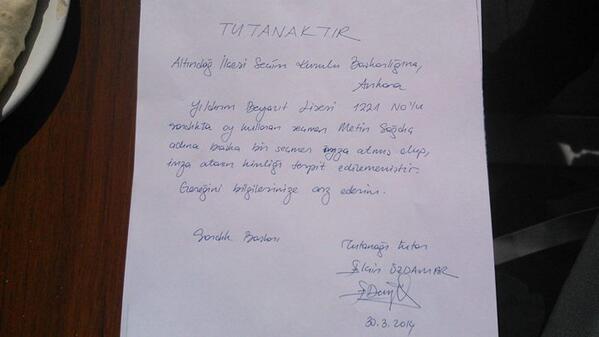 TUTANAKTIR
Altındağ İlçesi Seçim Kurulu Başkanlığına,
Ankara
Yıldırım Beyazıt Lisesi 1221 No'lu
sandıkta oy kullanan seçmen Metin Sağdıç
adına başka bir seçmen imza atmış olup,
imza atanın kimliği tespit edilememiştir.
Gereğini bilgilerinize arz ederim.
Sandık Başkanı
Tutanağı Tutan
ÖZDAMAR
30.3.2014